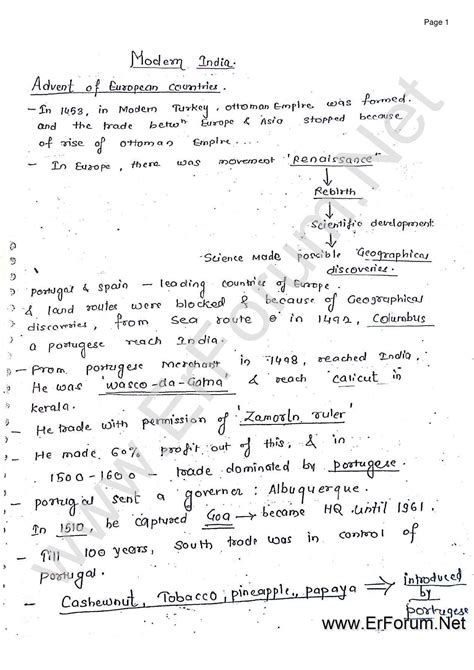 Page 1
Modern India.
Advent of European countries.
- In 1453, in Modern Turkey, Ottoman Empire was formed.
and the trade betwn Europe & Asia stopped because
of rise of Ottoman Empire....
- In Europe, there was movement "Renaissance"
Rebirth
Scientific development
Science made possible Geographical
discoveries.
Portugal & Spain - leading countries of Europe.
& land routes were blocked & because of Geographical
discoveries, from Sea route in 1492, Columbus
a portugese reach India.
- From portugese Merchant in 1498, reached India.
He was 'Wasco-da-Gama' & reach calicut in
kerala.
- He trade with permission of 'Zamorin ruler'
- He made 60% profit out of this, & in
1500-1600 - trade dominated by portugese.
- portugal sent a governer : Albuquerque.
In 1510, he captured Goa → became HQ until 1961.
- Till 100 years, South trade was in control of
Portugal.
- Cashewnut, Tobacco, pineapple, papaya ⇒ introduced
by
portugese
www.ErForum.Net
www.ErForum.Net